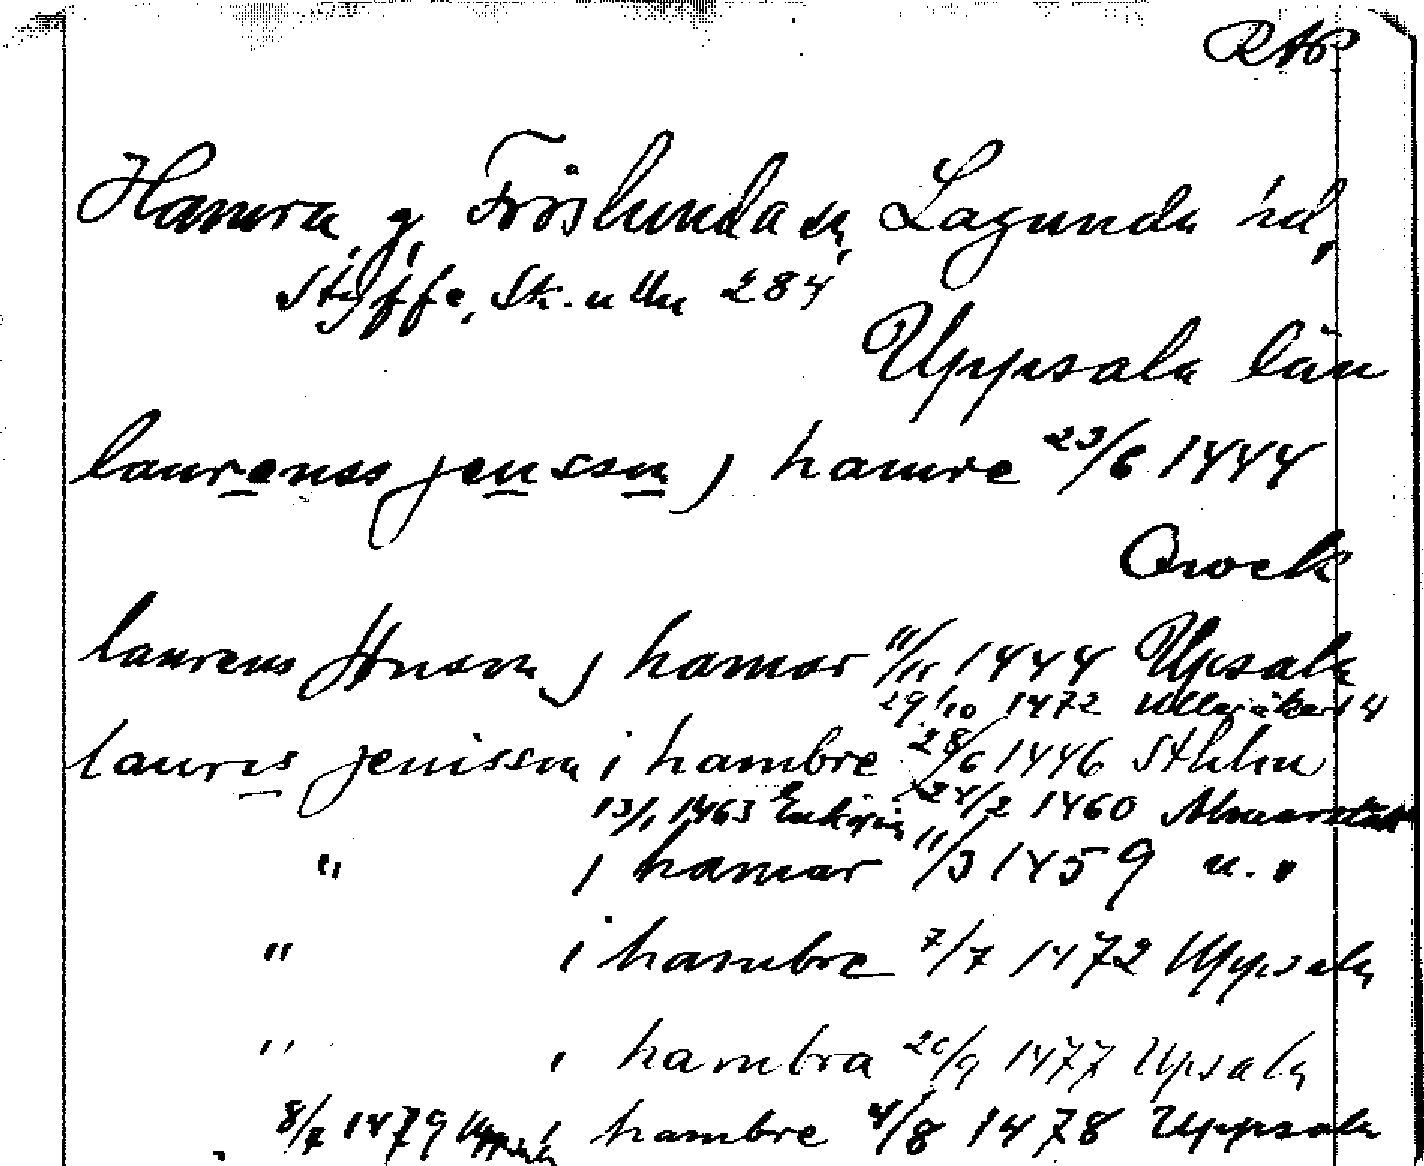 RAP
Hamra, g, Fröslunda sn, Lagunda hd,
Styffe, Sk. u Un 284
Uppsala län
laurenss jensson j hamre 23/6 1444
laurens Jnson j hamar 11/11 1444 Upsala
29/10 1472 Ulleråkers
lauris jenisson i hambre 28/6 1446 Sthlm
13/1 1463 24/2 1460
" j hamar 11/3 1459 u. "
" i hambre 7/7 1472 Uppsala
" i hambra 20/9 1477 Upsala
8/7 1479 Uppsala i hambre 4/8 1478 Uppsala